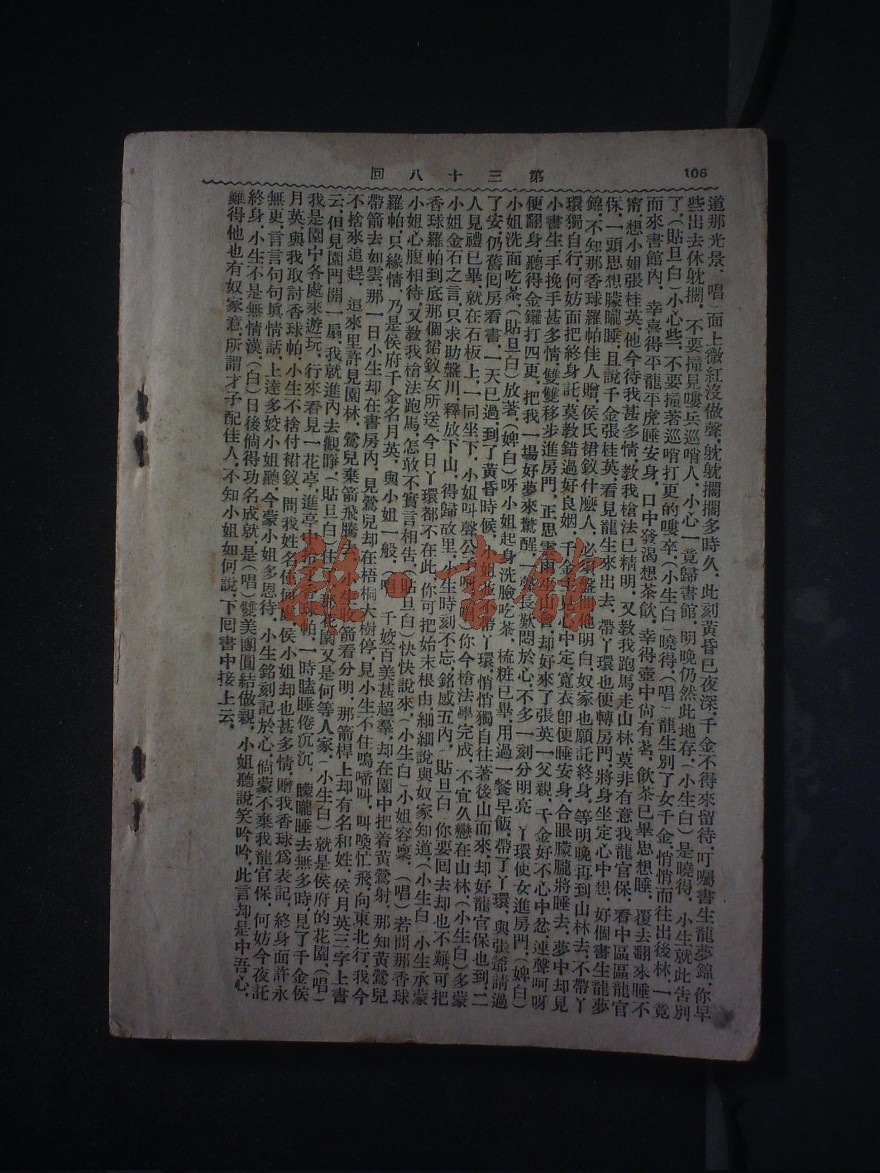 106
第三十八回
道那光景，唱）面上微紅沒做聲，躭躭擱擱多時久，此刻黃昏已夜深，千金不得來留待，叮囑書生龍夢錦，你早
些出去休躭擱，不要撞見嘍兵巡哨人，小心一竟歸書館，明晚仍然此地存，（小生白）是曉得，小生就此告別
了，（貼旦白）小心些，不要撞著巡哨打更的嘍卒，（小生白）曉得（唱）龍生別了女千金，悄悄而往出後林，一竟
而來書館內，幸喜得平龍平虎睡安身，口中發渴想茶飲，幸得壺中尙有茗，飲茶已畢思想睡，覆去翻來睡不
甯，想小姐張桂英，他今待我甚多情，教我槍法已精明，又教我跑馬走山林，莫非有意我龍官保，看中區區龍官
保，一頭思想朦朧睡，且說千金張桂英，看見龍生來出去，帶丫環也便轉房門，將身坐定心中想，好個書生龍夢
錦，不知那香球羅帕佳人贈，侯氏裙釵什麼人，必須盤問他明白，奴家也願託終身，等明晚再到山林去，不帶丫
環獨自行，何妨面把終身託，莫教錯過好良姻，千金主見心中定，寬衣卽便睡安身，合眼朦朧將睡去，夢中却見
小書生，手挽手甚多情，雙雙移步進房門，正思雲雨，却好來了張英一父親，千金好不心中忿，連聲呵呀
便翻身，聽得金鑼打四更，把我一場好夢來驚醒，一聲長歎悶於心，不多一刻分明亮，丫環使女進房門，（婢白）
小姐洗面吃茶，（貼旦白）放著（婢白）呀小姐起身洗臉吃茶，梳粧已畢，用過一餐早飯，帶了丫環，與張爺請過
了安，仍舊囘房看書，一天已過，到了黃昏時候，小姐也不帶丫環，悄悄獨自往著後山而來，却好龍官保也到，二
人見禮已畢，就在石板上，一同坐下，小姐叫聲公子呀，你今槍法學完成，不宜久戀在山林，（小生白）多蒙
小姐金石之言，只求助盤川，釋放下山，得歸故里，小生時刻不忘，銘感五內，（貼旦白）你要囘去却也不難，可把
香球羅帕到底那個裙釵女所送，今日丫環都不在此，你可把始末根由，細細說與奴家知道，（小生白）小生承蒙
小姐心腹相待，又教我槍法跑馬，怎敢不實言相告，（貼旦白）快快說來，（小生白）小姐容稟，（唱）若問那香球
羅帕，只緣情，乃是侯府千金名月英，與小姐一般，（唱）千姣百美甚超羣，却在園中把着黃鶯射，那知黃鶯兒
帶箭去如雲，那一日小生却在書房內，見鶯兒却在梧桐大樹停，見小生不住鳴啼叫，叫喚忙飛，向東北行，我今
不捨來追趕，逗來里許見園林，鶯兒棄箭飛騰去，箭看分明，那箭桿上却有名和姓，侯月英三字上書
云，但見園門開一扇，我就進內去觀睜，（貼旦白）住了那花園又是何等人家，（小生白）就是侯府的花園，（唱）
我是園中，各處來遊玩，行來看見一花亭，進亭香球帕，一時瞌睡倦沉沉，朦朧睡去無多時，見了千金侯
月英，與我取討香球帕，小生不捨付裙釵，問我姓名住何處，侯小姐却也甚多情，贈我香球爲表記，終身面許永
無更，言言句句眞情話，上達多姣小姐聽，今蒙小姐多恩待，小生銘刻記於心，倘蒙不棄我龍官保，何妨今夜託
終身，小生不是無情漢，（白）日後倘得功名成就，是（唱）雙美團圓結做親，小姐聽說笑吟吟，此言却是中吾心，
難得他也有奴家意，所謂才子配佳人，不知小姐如何說，下囘書中接上云，